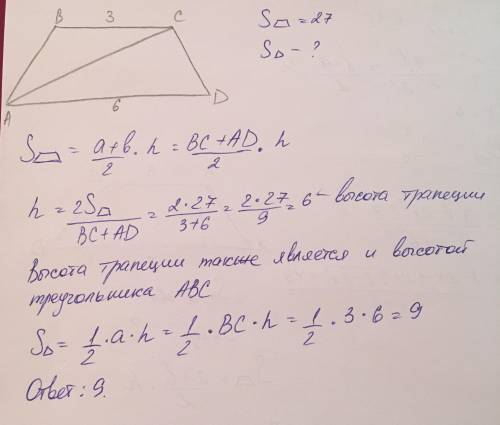 B 3 C
S▱ = 27
S△ - ?
A 6 D
S▱ = a+b/2 · h = BC+AD/2 · h
h = 2S▱/BC+AD = 2·27/3+6 = 2·27/9 = 6 - высота трапеции
Высота трапеции также является и высотой
треугольника ABC
S△ = 1/2 · a · h = 1/2 · BC · h = 1/2 · 3 · 6 = 9
Ответ: 9.